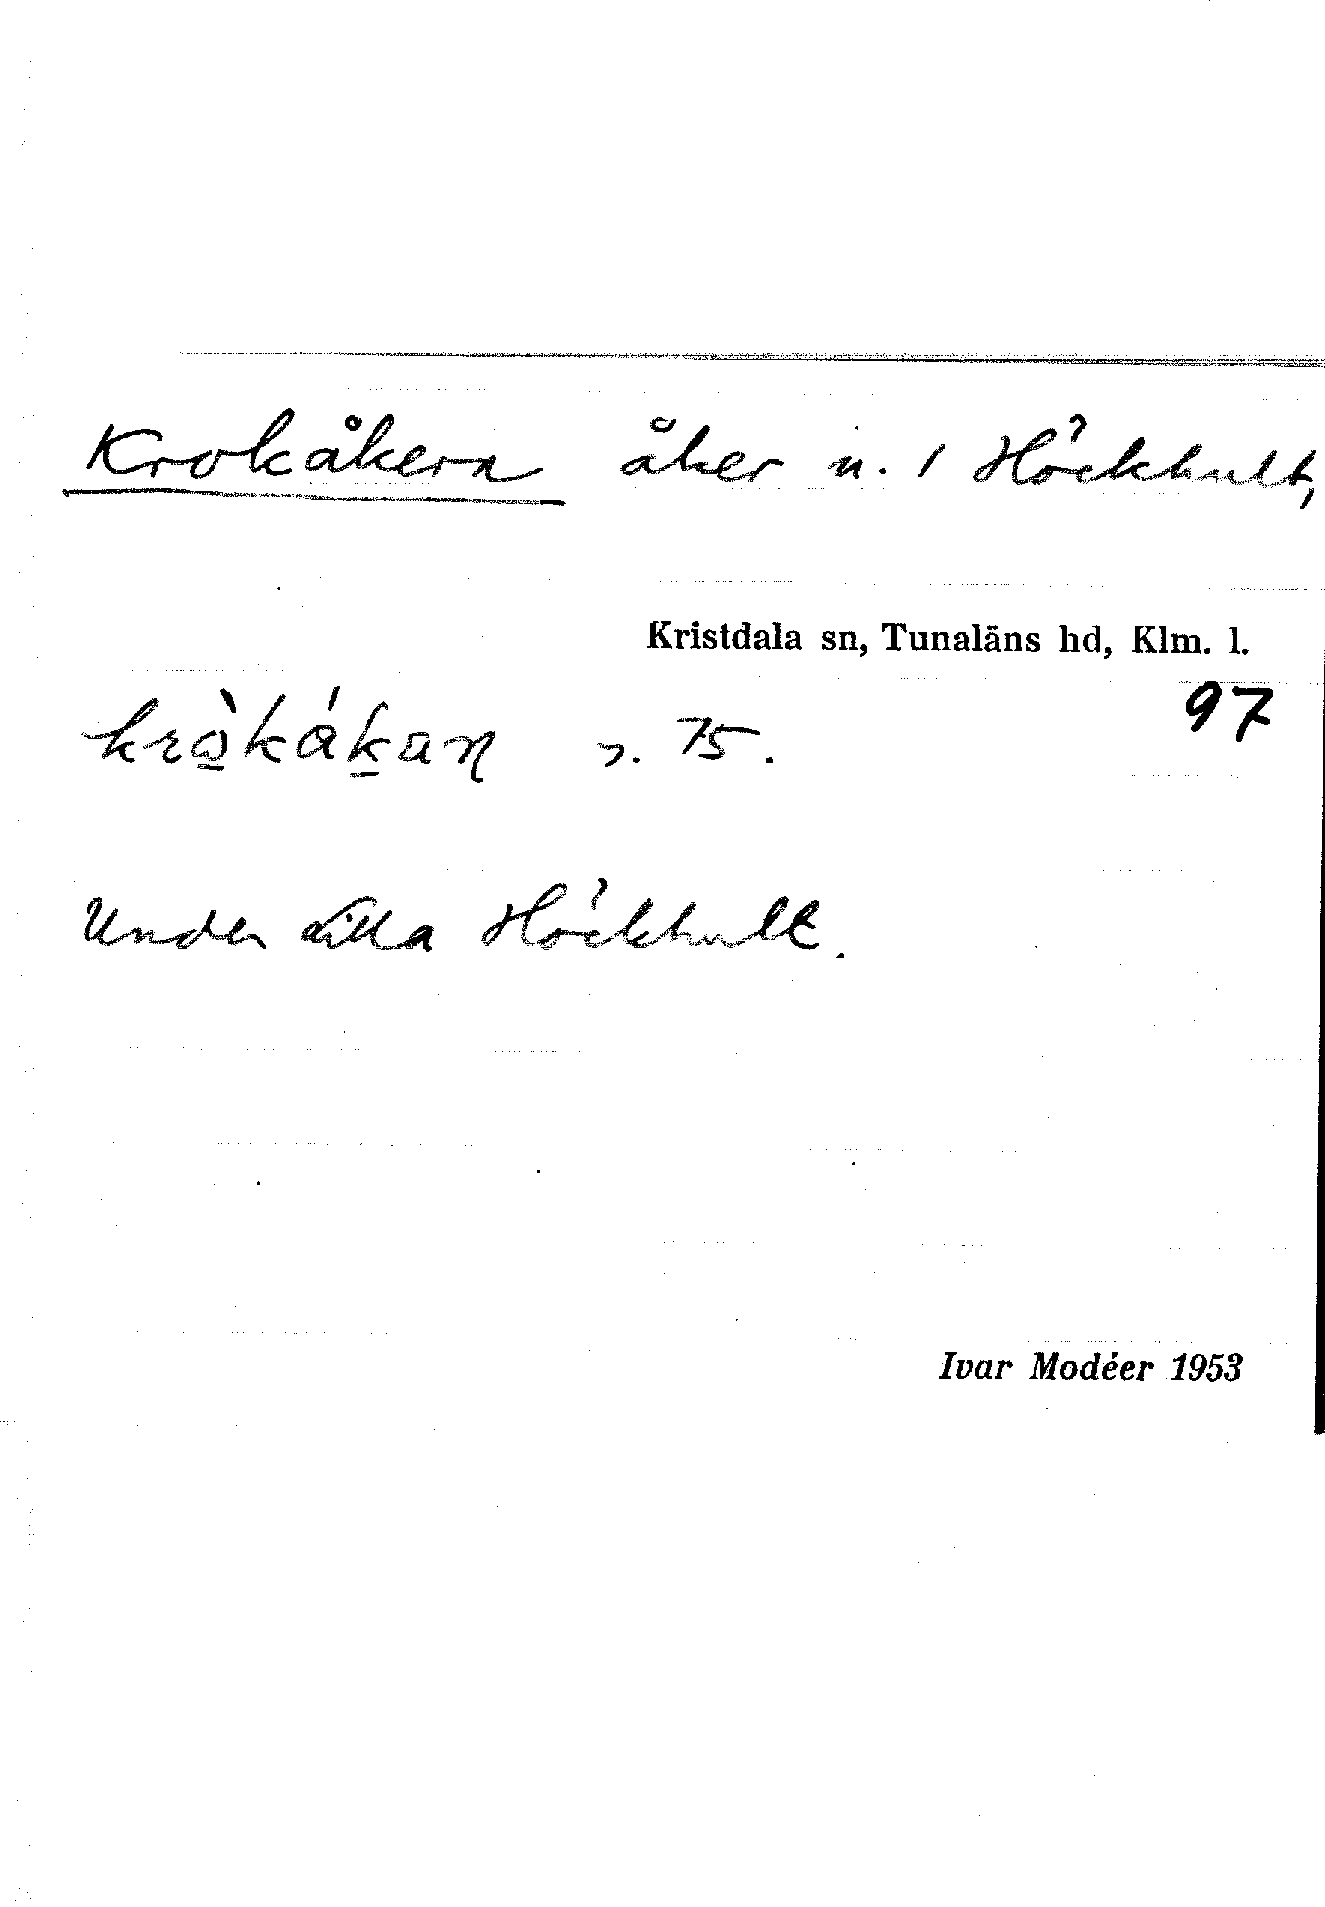 Krokåkern åker u. 1 Höckhult,
Kristdala sn, Tunaläns hd, Klm. l.
97
75.
Under Lilla Höckhult.
Ivar Modéer 1953